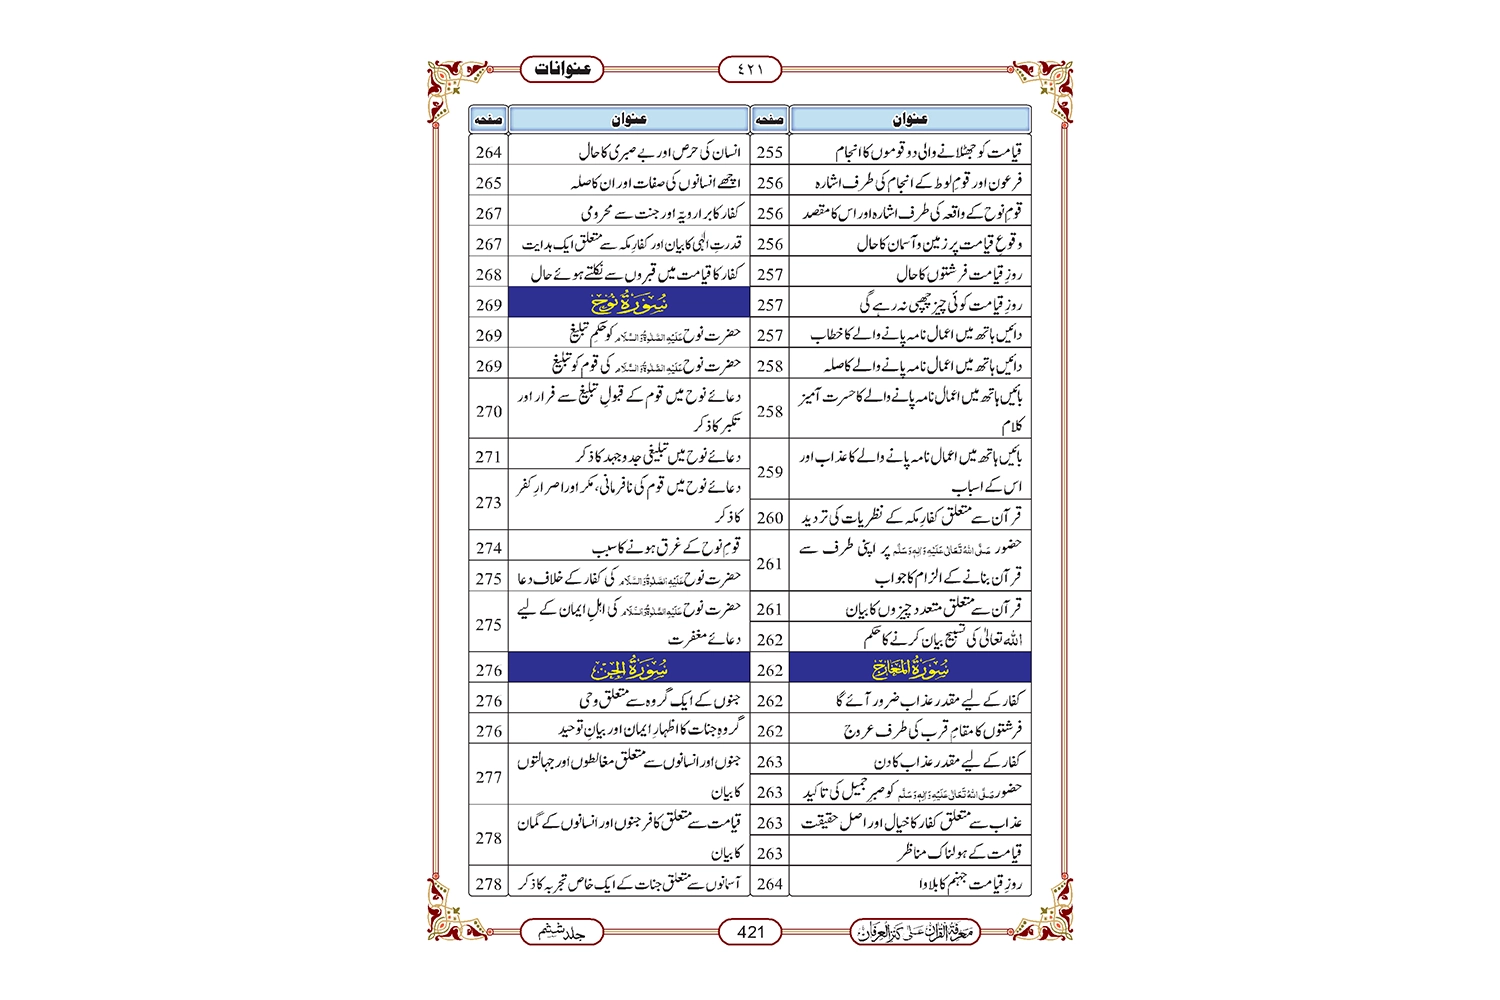 عنوانات
٤٢١
عنوان صفحہ
قیامت کو جھٹلانے والی دو قوموں کا انجام 255
فرعون اور قومِ لوط کے انجام کی طرف اشارہ 256
قومِ نوح کے واقعہ کی طرف اشارہ اور اس کا مقصد 256
وقوعِ قیامت پر زمین و آسمان کا حال 256
روزِ قیامت فرشتوں کا حال 257
روزِ قیامت کوئی چیز چھپی نہ رہے گی 257
دائیں ہاتھ میں اعمال نامہ پانے والے کا خطاب 257
دائیں ہاتھ میں اعمال نامہ پانے والے کا صلہ 258
بائیں ہاتھ میں اعمال نامہ پانے والے کا حسرت آمیز
کلام 258
بائیں ہاتھ میں اعمال نامہ پانے والے کا عذاب اور
اس کے اسباب 259
قرآن سے متعلق کفارِ مکہ کے نظریات کی تردید 260
حضور صَلَّی اللہُ تَعَالٰی عَلَیْہِ وَاٰلِہٖ وَسَلَّم پر اپنی طرف سے
قرآن بنانے کے الزام کا جواب 261
قرآن سے متعلق متعدد چیزوں کا بیان 261
اللہ تعالیٰ کی تسبیح بیان کرنے کا حکم 262
سُوْرَۃُ الْمَعَارِجِ 262
کفار کے لیے مقدر عذاب ضرور آئے گا 262
فرشتوں کا مقامِ قرب کی طرف عروج 262
کفار کے لیے مقدر عذاب کا دن 263
حضور صَلَّی اللہُ تَعَالٰی عَلَیْہِ وَاٰلِہٖ وَسَلَّم کو صبرِ جمیل کی تاکید 263
عذاب سے متعلق کفار کا خیال اور اصل حقیقت 263
قیامت کے ہولناک مناظر 263
روزِ قیامت جہنم کا بلاوا 264
عنوان صفحہ
انسان کی حرص اور بے صبری کا حال 264
اچھے انسانوں کی صفات اور ان کا صلہ 265
کفار کا برا رویہ اور جنت سے محرومی 267
قدرتِ الٰہی کا بیان اور کفارِ مکہ سے متعلق ایک ہدایت 267
کفار کا قیامت میں قبروں سے نکلتے ہوئے حال 268
سُوْرَۃُ نُوْح 269
حضرت نوح عَلَیْہِ الصَّلٰوۃُ وَالسَّلَام کو حکمِ تبلیغ 269
حضرت نوح عَلَیْہِ الصَّلٰوۃُ وَالسَّلَام کی قوم کو تبلیغ 269
دعائے نوح میں قوم کے قبولِ تبلیغ سے فرار اور
تکبر کا ذکر 270
دعائے نوح میں تبلیغی جدوجہد کا ذکر 271
دعائے نوح میں قوم کی نافرمانی، مکر اور اصرارِ کفر
کا ذکر 273
قومِ نوح کے غرق ہونے کا سبب 274
حضرت نوح عَلَیْہِ الصَّلٰوۃُ وَالسَّلَام کی کفار کے خلاف دعا 275
حضرت نوح عَلَیْہِ الصَّلٰوۃُ وَالسَّلَام کی اہلِ ایمان کے لیے
دعائے مغفرت 275
سُوْرَۃُ الْجِنّ 276
جنوں کے ایک گروہ سے متعلق وحی 276
گروہِ جنات کا اظہارِ ایمان اور بیانِ توحید 276
جنوں اور انسانوں سے متعلق مغالطوں اور جہالتوں
کا بیان 277
قیامت سے متعلق کافر جنوں اور انسانوں کے گمان
کا بیان 278
آسمانوں سے متعلق جنات کے ایک خاص تجربہ کا ذکر 278
معرفۃ القرآن علی کنز العرفان
421
جلد ششم